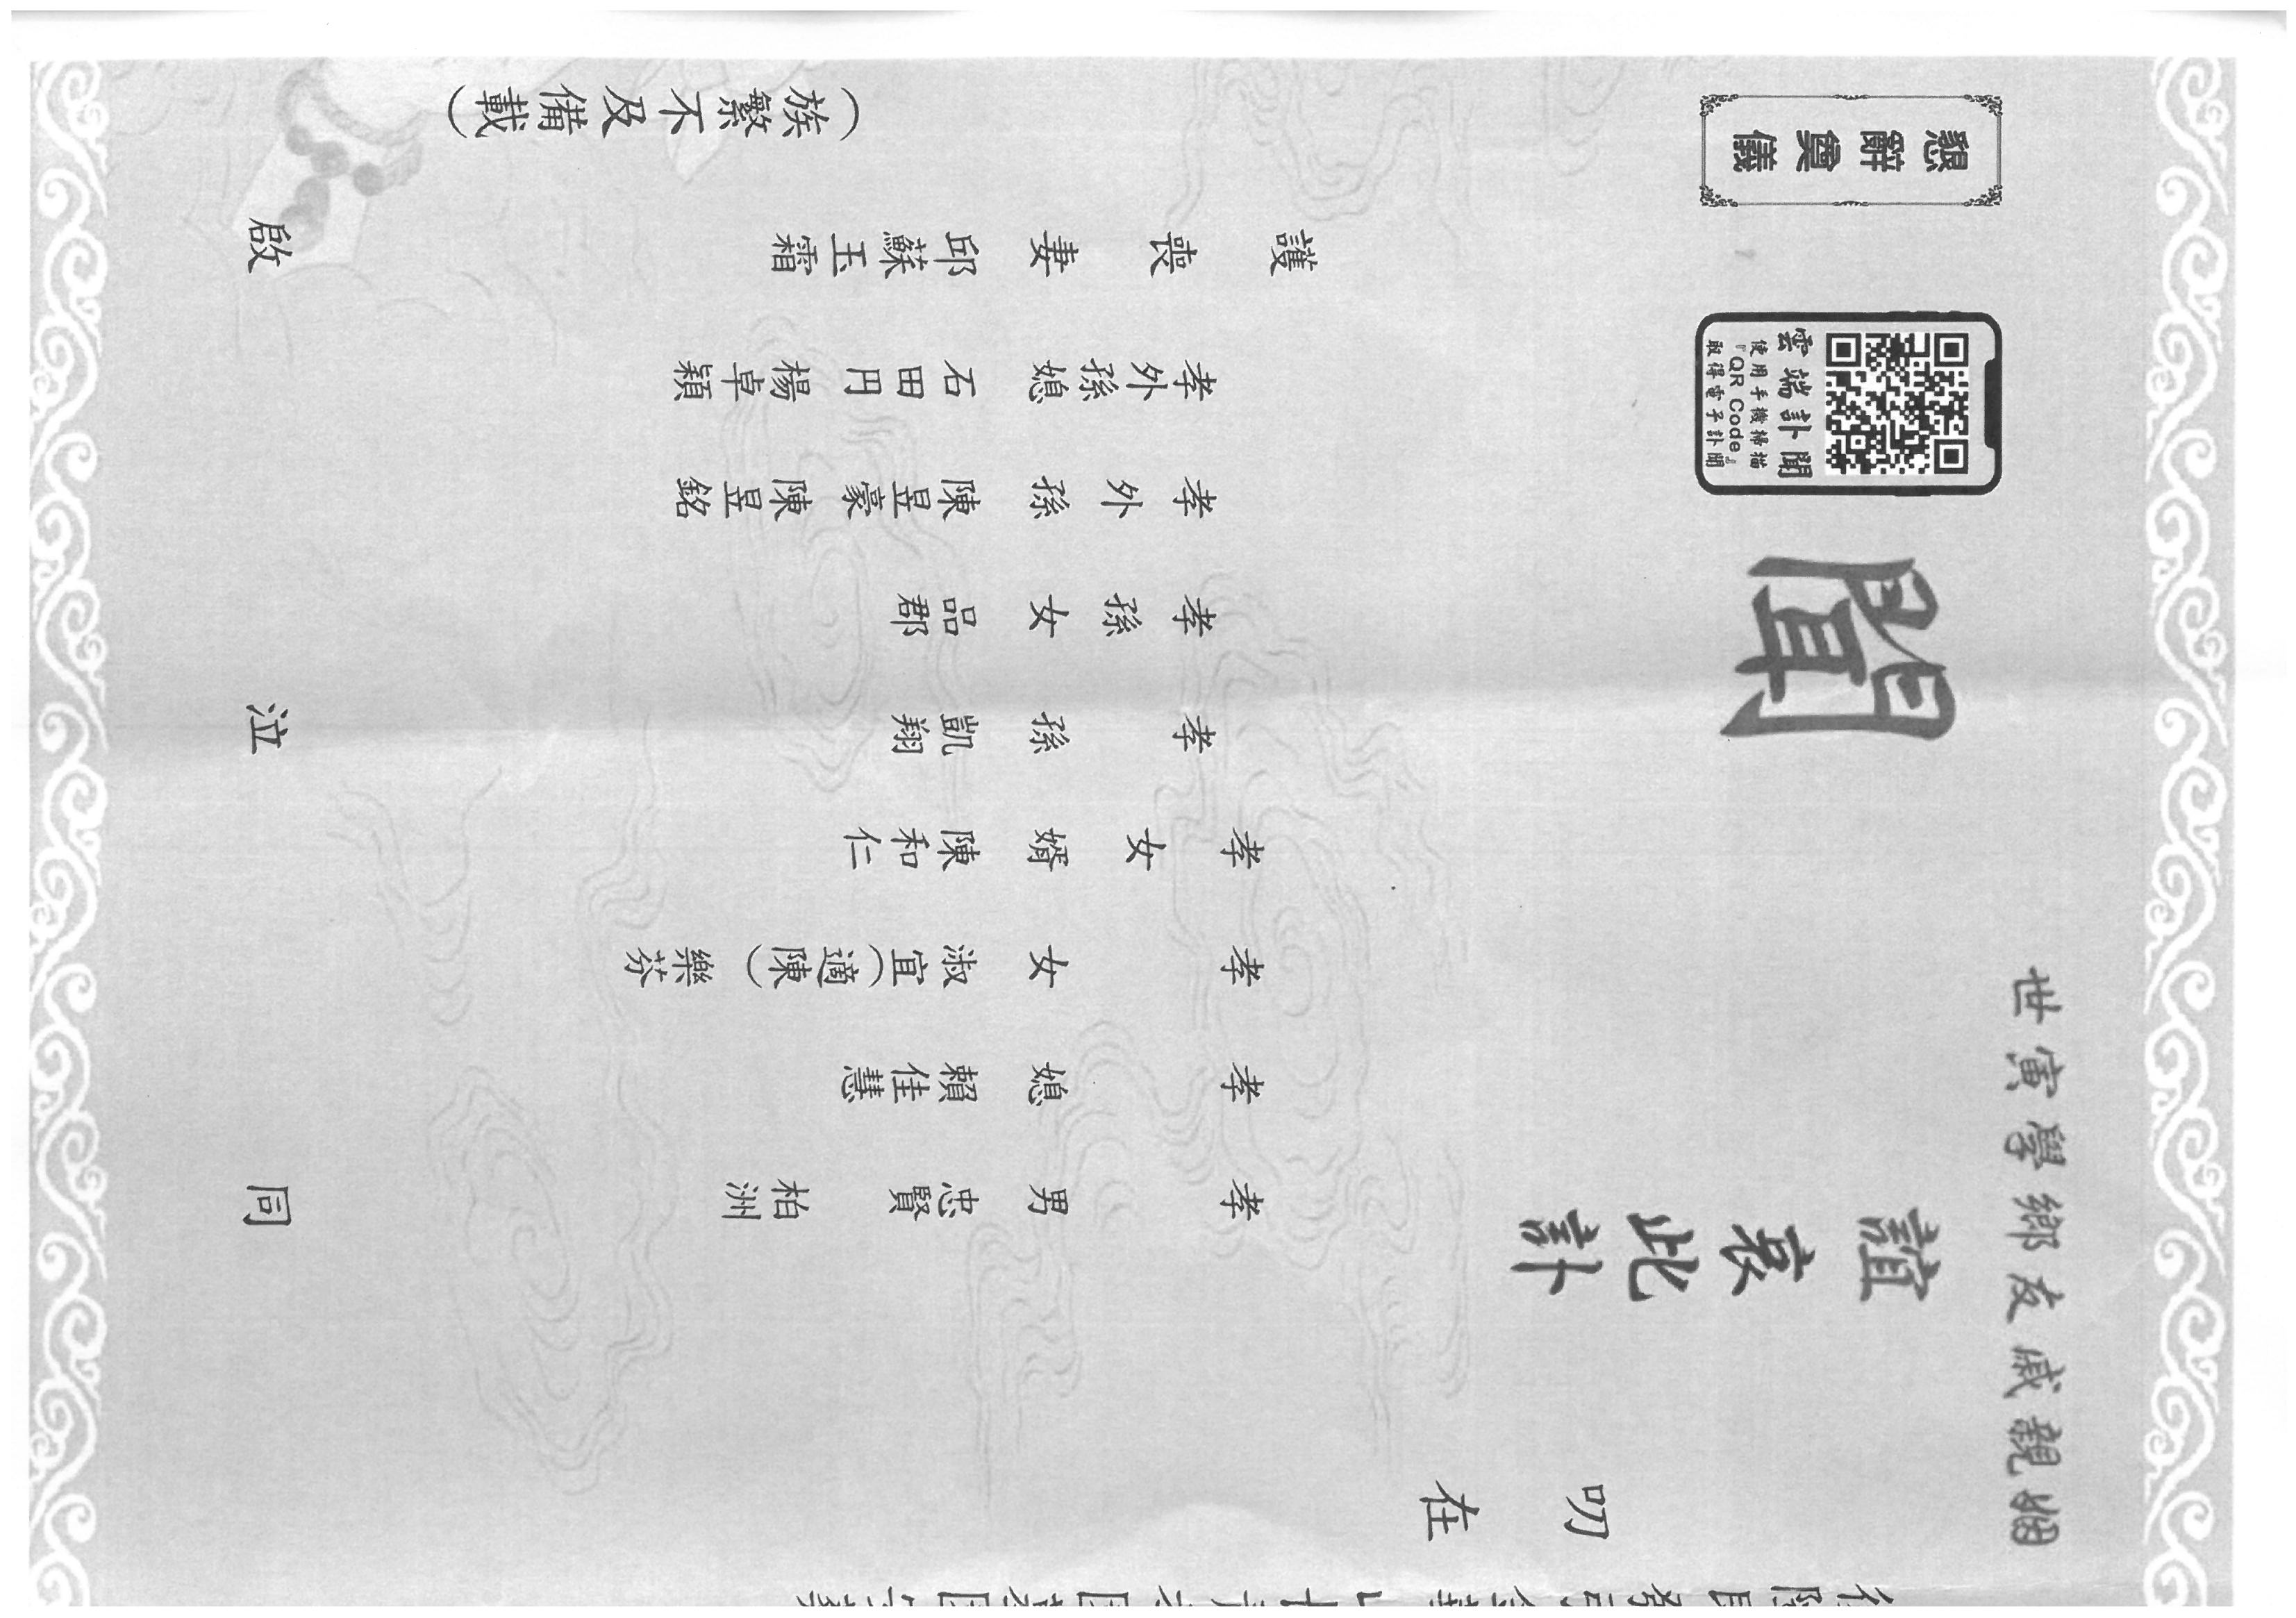 叨在
姻親戚友鄉學寅世
誼哀此訃
聞
雲端訃聞
使用手機掃描
『QR Code』
取得電子訃聞
懇辭奠儀
孝男 忠賢 柏洲
孝媳 賴佳慧
孝女 淑宜(適陳) 樂芬
孝女婿 陳和仁
孝孫 凱翔
孝孫女 品郡
孝外孫 陳昱豪 陳昱銘
孝外孫媳 石田円 楊卓穎
護喪妻 邱蘇玉霜
(族繁不及備載)
同泣啟